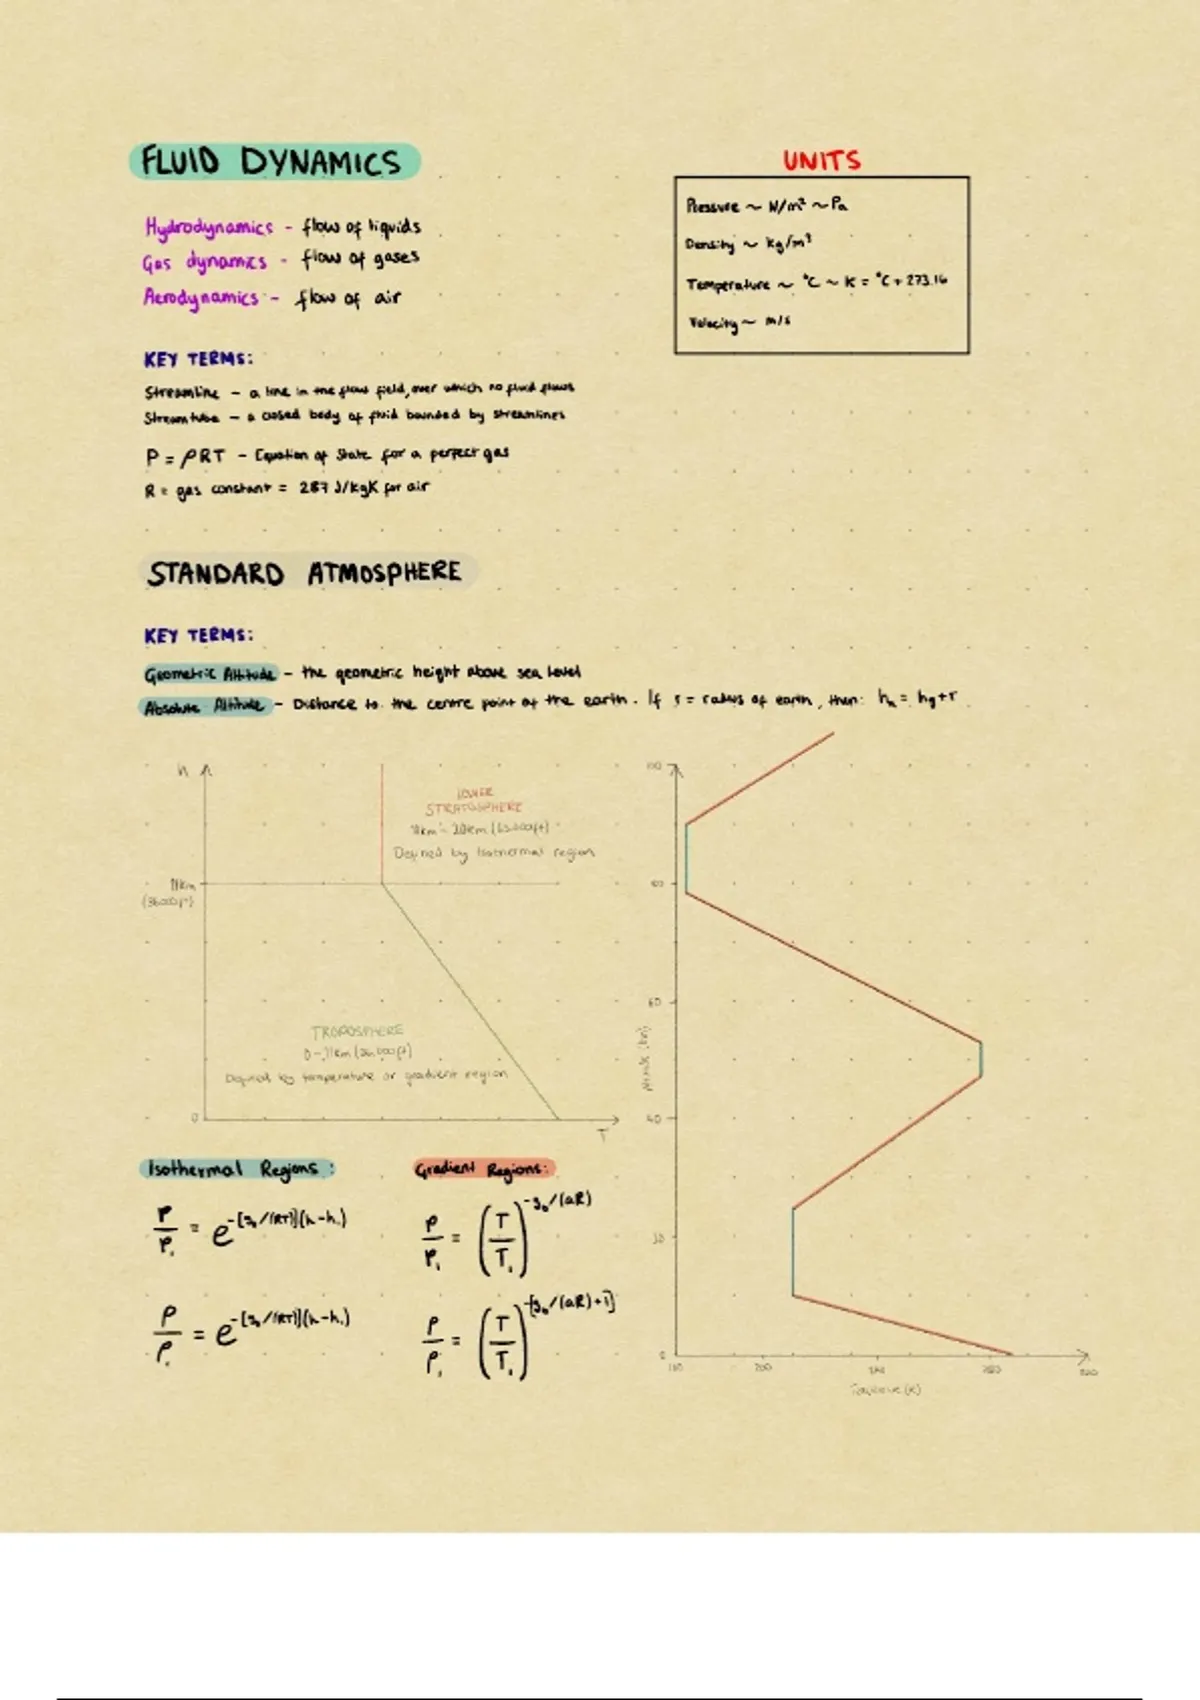 FLUID DYNAMICS
Hydrodynamics - flow of liquids
Gas dynamics - flow of gases
Aerodynamics - flow of air
UNITS
Pressure ~ N/m² ~ Pa
Density ~ kg/m³
Temperature ~ °C ~ K = °C + 273.16
Velocity ~ m/s
KEY TERMS:
Streamline - a line in the flow field, over which no fluid flows
Streamtube - a closed body of fluid bounded by streamlines
P = ρRT - Equation of State for a perfect gas
R = gas constant = 287 J/kgK for air
STANDARD ATMOSPHERE
KEY TERMS:
Geometric Altitude - the geometric height above sea level
Absolute Altitude - Distance to the centre point of the earth. If r = radius of earth, then: hₐ = hg + r
h
LOWER
STRATOSPHERE
11km - 20km
Defined by Isothermal region
11km
(36000ft)
TROPOSPHERE
0-11km (36,000ft)
Defined by temperature or gradient region
0
T
100
60
40
0
200
Isothermal Regions:
P/P₁ = e^-[g₀/(RT)](h-h₁)
ρ/ρ₁ = e^-[g₀/(RT)](h-h₁)
Gradient Regions:
P/P₁ = (T/T₁)^-g₀/(aR)
ρ/ρ₁ = (T/T₁)^-[g₀/(aR)+1]